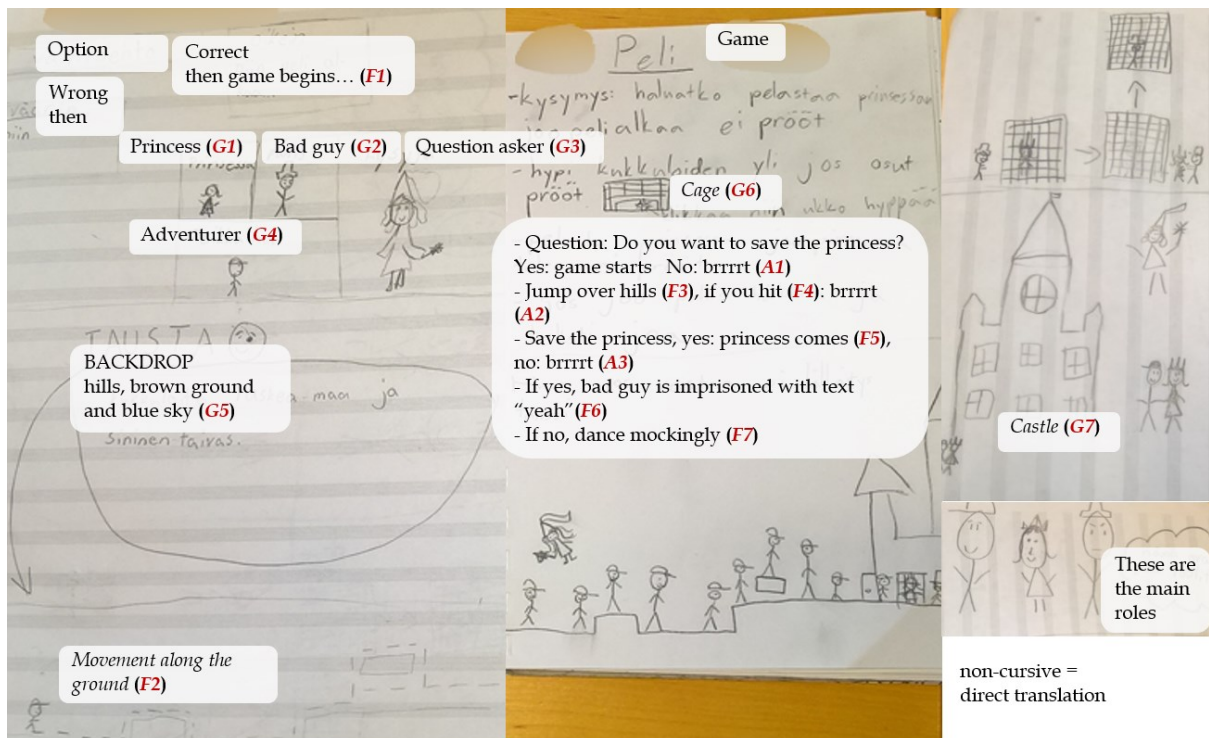 Option
Correct
then game begins... (F1)
Wrong
then
Princess (G1)
Bad guy (G2)
Question asker (G3)
Adventurer (G4)
BACKDROP
hills, brown ground
and blue sky (G5)
maa ja
sininen taivas.
Movement along the
ground (F2)
Game
Peli
-kysymys: haluatko pelastaa prinsessan
peli alkaa ei prööt
- hypi kukkuloiden yli jos osut
prööt
niin ukko hyppää
Cage (G6)
- Question: Do you want to save the princess?
Yes: game starts No: brrrrt (A1)
- Jump over hills (F3), if you hit (F4): brrrrt
(A2)
- Save the princess, yes: princess comes (F5),
no: brrrrt (A3)
- If yes, bad guy is imprisoned with text
“yeah”(F6)
- If no, dance mockingly (F7)
Castle (G7)
These are
the main
roles
non-cursive =
direct translation